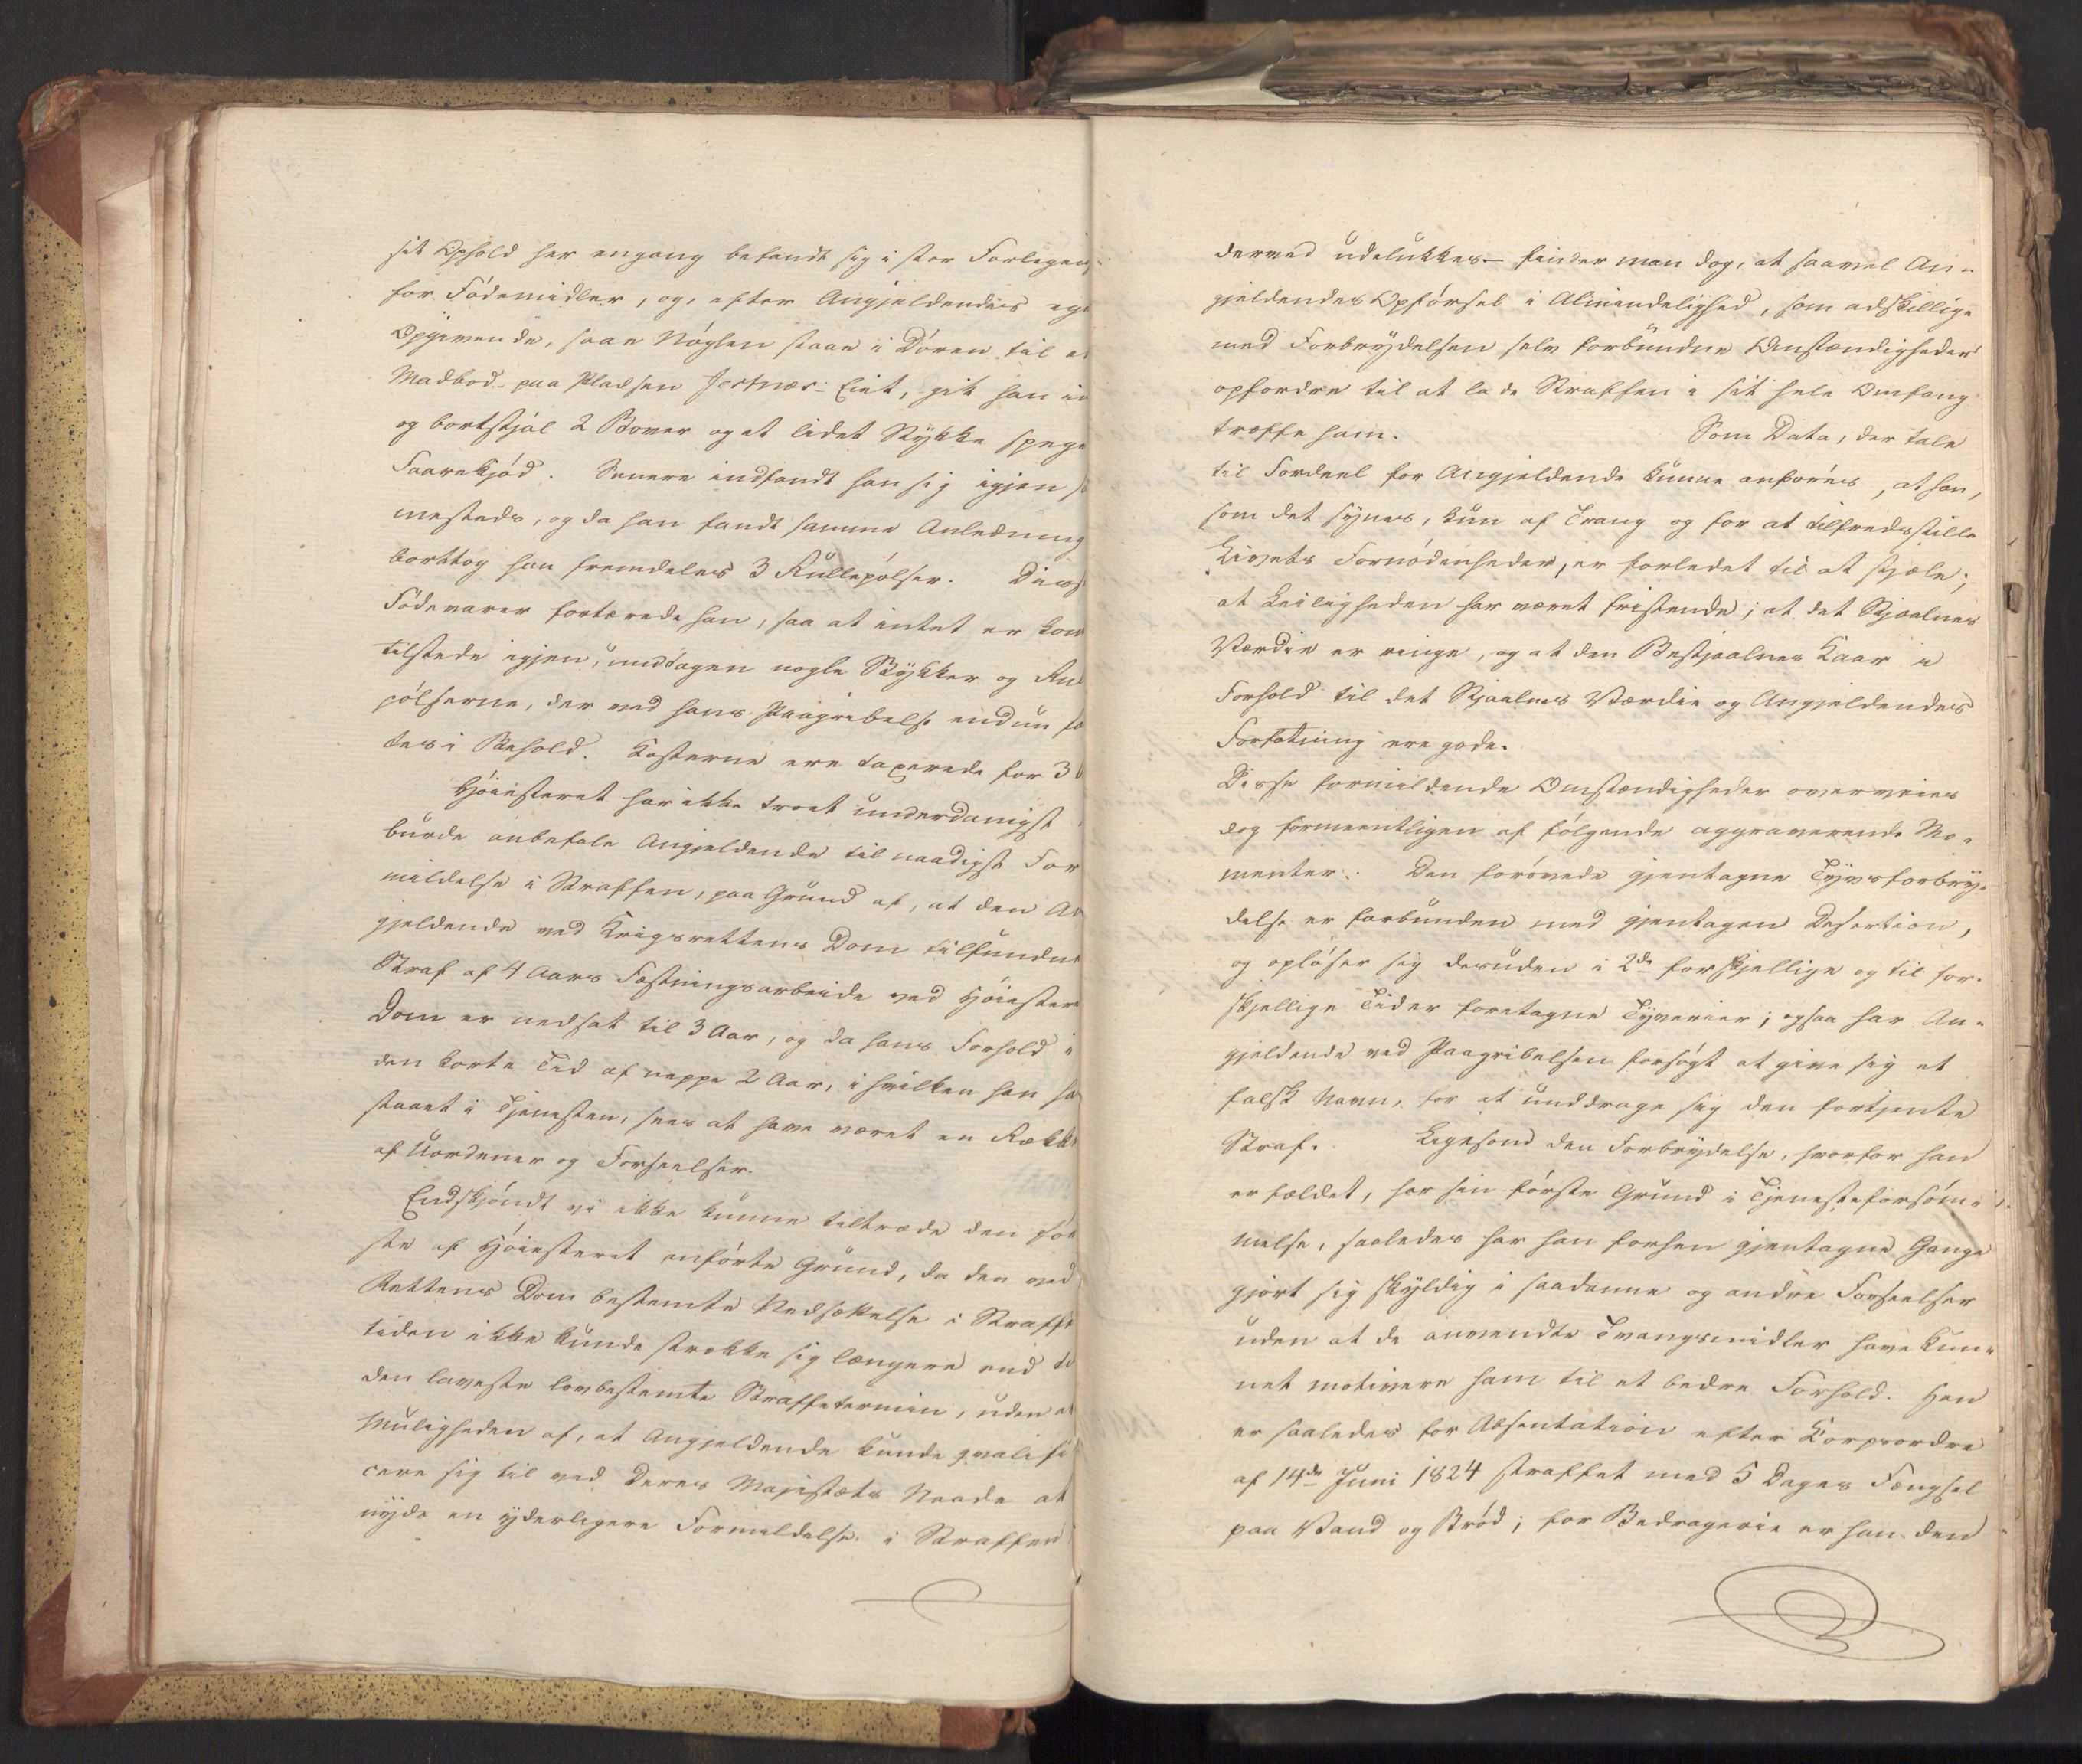 sit Ophold her engang befandt sig i stor Forlegen-
for Födemidler, og, efter Angjeldendes eget
Opgivende, saae Nöglen staae i Dören til et
Madbod paa Pladsen Jestnæs-Eiet, gik han in
og bortstjal 2 Bover og et lidet Stykke speget
Faarekjöd. Senere indfandt han sig igjen s
mesteds, og da han fandt samme Anledning
borttog han fremdeles 3 Rullepölser. Disse
Födevarer fortærede han, saa at intet er kom
tilstede igjen, undtagen nogle Stykker og Rul
pölserne, der ved hans Paagribelse endnu ha
tes i Behold. Kosterne ere taxerede for 3
Höiesteret har ikke troet underdanigst
burde anbefale Angjeldende til naadigst For
mildelse i Straffen, paa Grund af, at den An
gjeldende ved Krigsrettens Dom tilfundne
Straf af 4 Aars Fæstningsarbeide ved Höiesterets
Dom er nedsat til 3 Aar, og da hans Forhold i
den korte Tid af neppe 2 Aar, i hvilken han ha
staaet i Tjenesten, sees at have været en Række
af Uordener og Forseelser.
Endskjöndt vi ikke kunne tiltræde den för
ste af Höiesteret anförte Grund, da den ved
Rettens Dom bestemte Nedsættelse i Straffe
tiden ikke kunde strække sig længere end til
den laveste lovbestemte Straffetermin, uden at
Muligheden af, at Angjeldende kunde qvalifi
cere sig til ved Deres Majestæts Naade at
nyde en yderligere Formildelse i Straffen
derved udelukkes – finder man dog, at saavel An-
gjeldendes Opförsel i Almindelighed, som adskillige
med Forbrydelsen selv forbundne Omstændigheder
opfordre til at lade Straffen i sit hele Omfang
træffe ham. Som Data, der tale
til Fordeel for Angjeldende kunne anföres, at han,
som det synes, kun af Trang og for at tilfredsstille
Livets Fornödenheder, er forledet til at stjæle;
at Leiligheden har været fristende; at det Stjaalnes
Værdie er ringe, og at den Bestjaalnes Kaar i
Forhold til det Stjaalnes Værdie og Angjeldendes
Forfatning ere gode.
Disse formildende Omstændigheder overveies
dog formeentligen af fölgende aggraverende Mo-
menter. Den forövede gjentagne Tyvsforbry-
delse er forbunden med gjentagen Desertion,
og oplöser sig desuden i 2de forskjellige og til for-
skjellige Tider foretagne Tyverier; ogsaa har An-
gjeldende ved Paagribelsen forsögt at give sig et
falsk Navn, for at unddrage sig den fortjente
Straf. Ligesom den Forbrydelse, hvorfor han
er fældet, har sin förste Grund i Tjenesteforsöm-
melse, saaledes har han forhen gjentagne Gange
gjort sig skyldig i saadanne og andre Forseelser
uden at de anvendte Tvangsmidler have kun-
net motivere ham til et bedre Forhold. Han
er saaledes for Absentation efter Korpsordre
af 14de Juni 1824 straffet med 5 Dages Fængsel
paa Vand og Bröd; for Bedragerie er han den